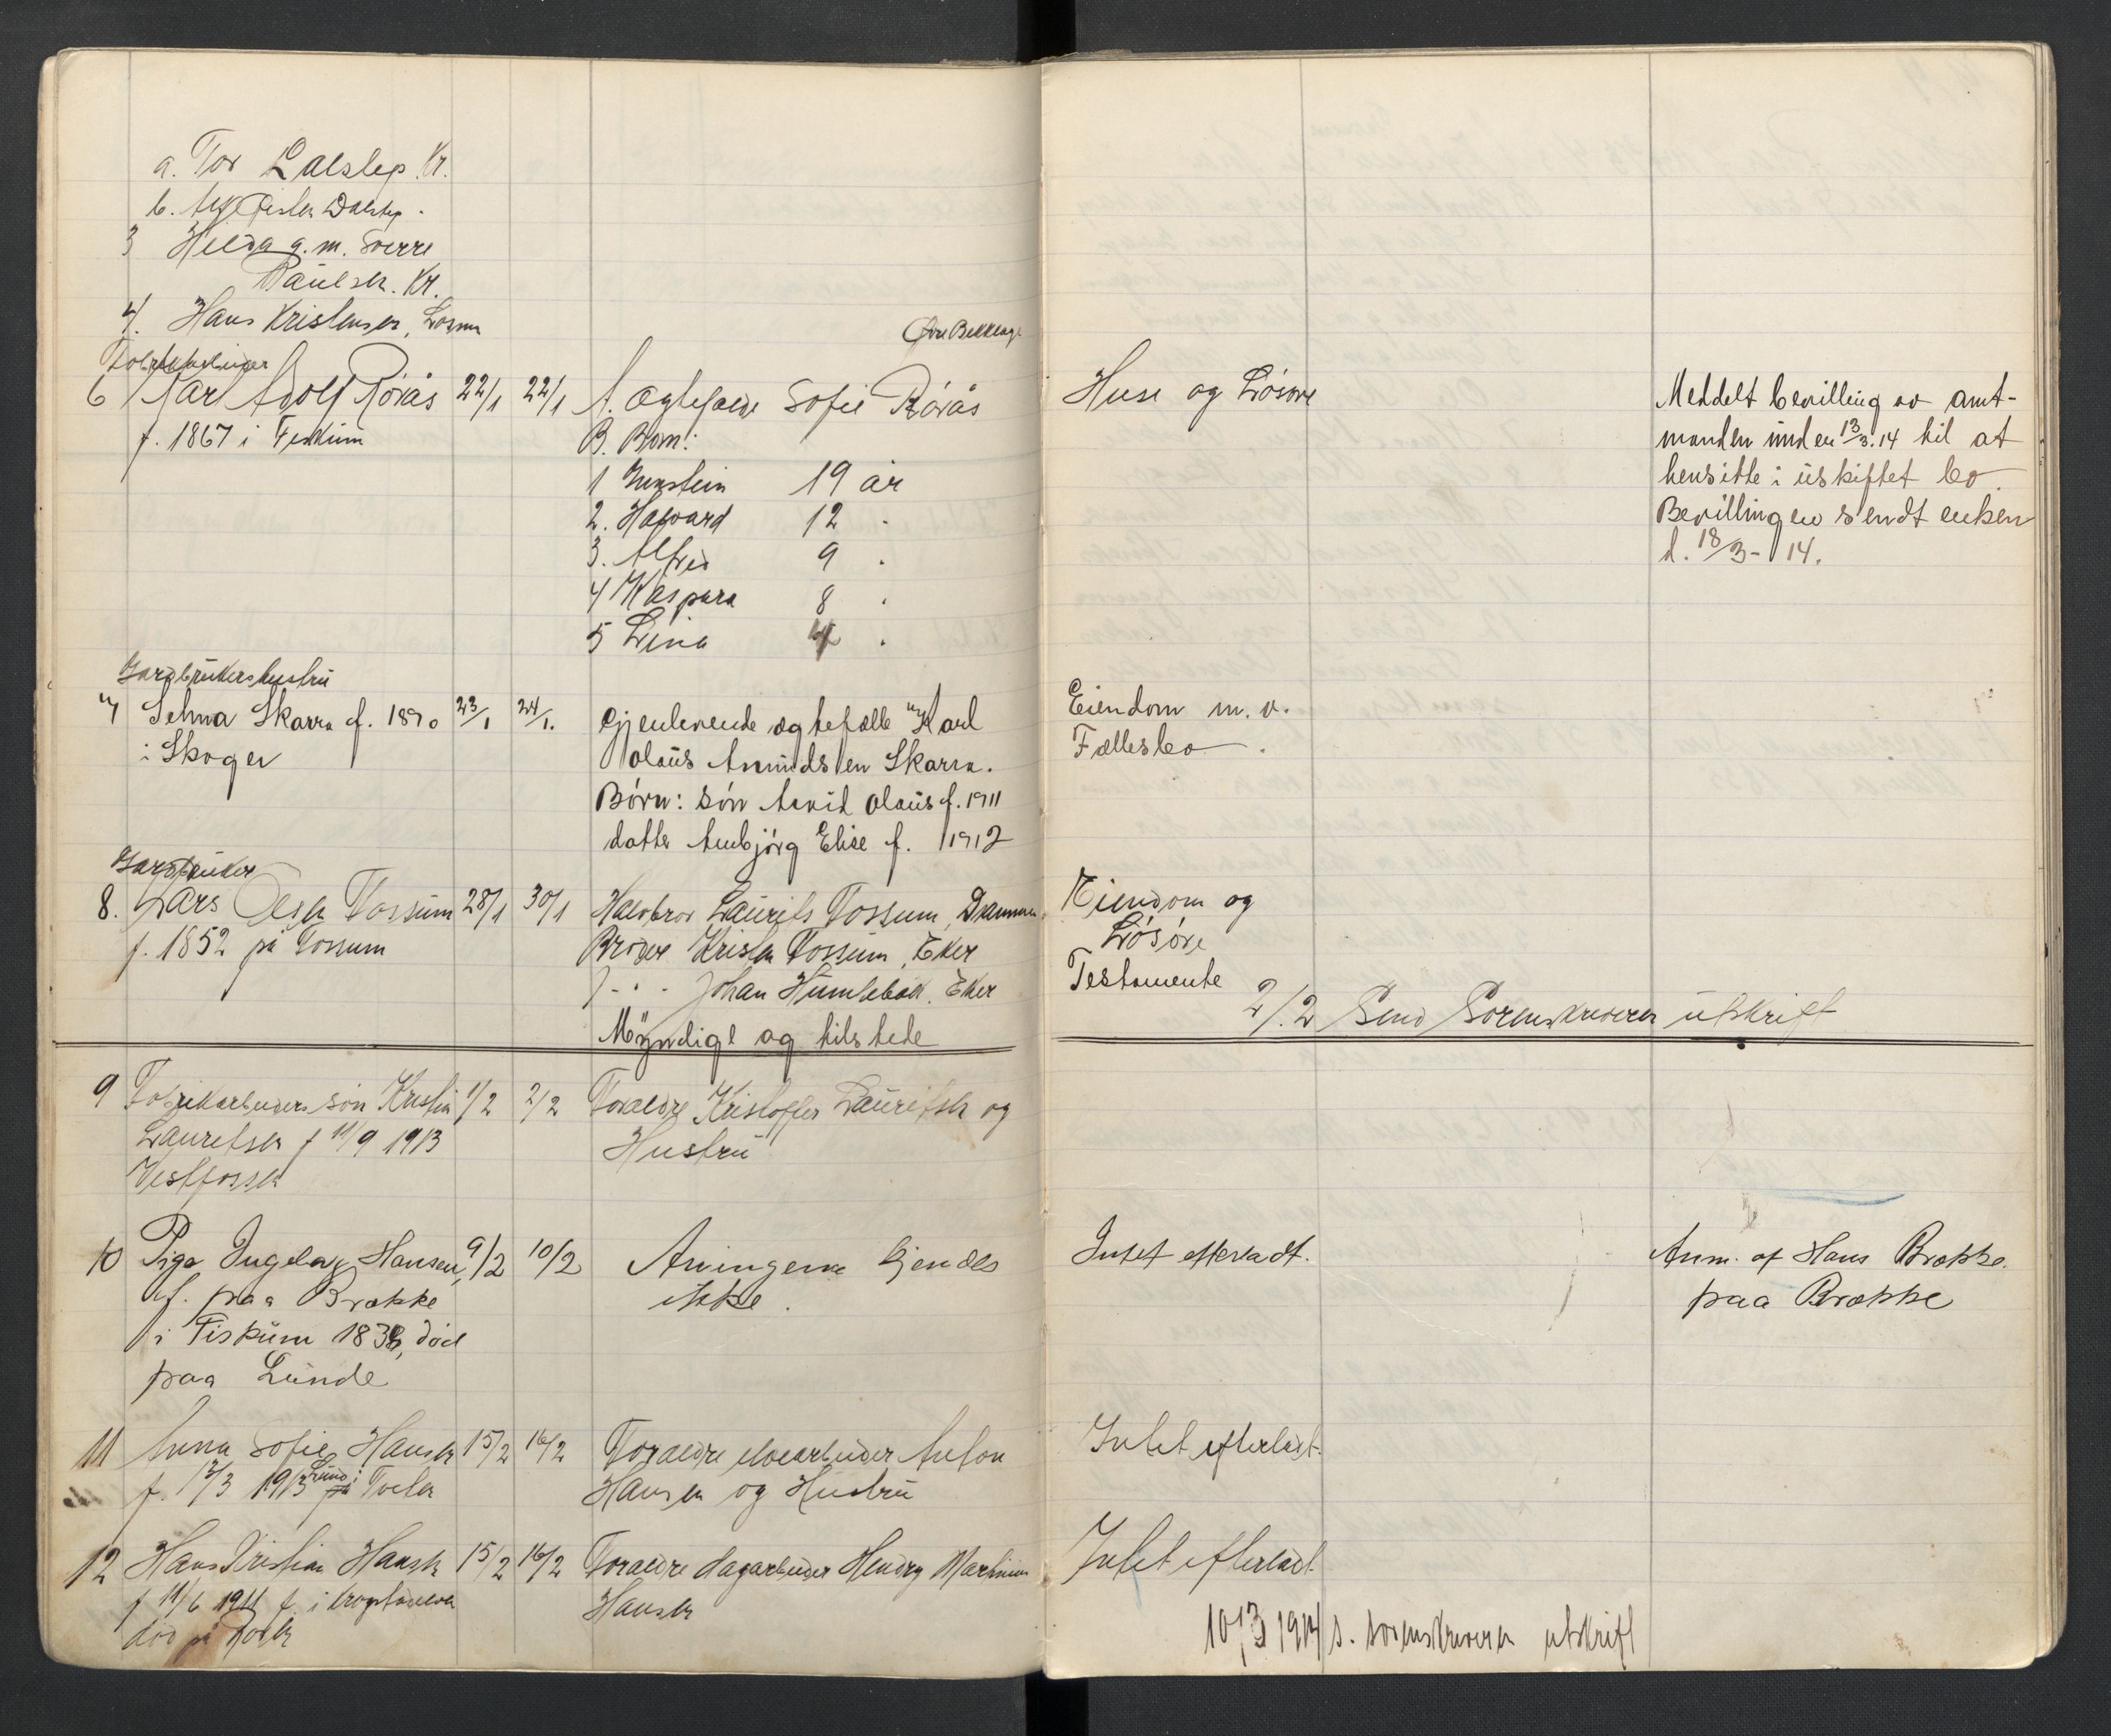 a. Tor Dalslep Kr.
b. Dalslep.
3 Hilda g. m. Sverre
Paulsen. Kr.
4. Hans Kristensen,
6 Karl Adolf Rörås 22/1 22/1 A. Ægtefælle Sofie Rörås
f. 1867 i Fiskum B. Barn:
1 19 år
2. Halvard 12 "
3. Alfred 9 "
4 Kaspara 8 "
5 Lina 4 "
Huse og Lösöre
Meddelt bevilling av amt-
manden under 13/3.14 til at
hensitte i uskiftet bo.
Bevillingen sendt enken
d. 18/3-14.
Gardbrukerhustru
7 Selma Skarra f. 1890 23/1 24/1. Gjenlevende ægtefælle Karl
i Skoger Olaus Amundsen Skarra.
Børn: søn Arvid Olaus f. 1911
datter Annbjörg Elise f. 1912
Eiendom m. v.
Fællesbo.
Gardbruker
8. Lars Olsen Fossum 28/1 30/1 Halvbror Laurits Fossum, Drammen
f. 1852 på Fossum Broder Kristen Fossum, Eker
" Johan Humlebæk. Eker
Myndige og tilstede
Eiendom og
Lösöre
Testamente
2/2 Send Sorenskriveren utskrift
9 Fabrikarbeiders sön Kristian 1/2 2/2 Foraeldre Kristoffer Lauritsen og
Lauritsen f 11/9 1913 Hustru
Vestfossen
10 Pige Ingeborg Hansen, 9/2 10/2 Arvingerne kjendes
f. paa Brække ikke.
i Fiskum 183 død
paa Lunde
Intet efterladt.
Anm. af Hans Brække
paa Brække
11 Anna Sofie Hansen 15/2 16/2 Foraeldre Anton
f. 1913 Hansen og Hustru
Intet efterladt.
12 Hans Kristian Hansen 15/2 16/2 Foraeldre dagarbeider Hendry Martinius
f 11/6 1911 f. i Krogstadelven Hansen
död på
Intet efterladt
10/3 1914 s. sorenskriveren utskrift